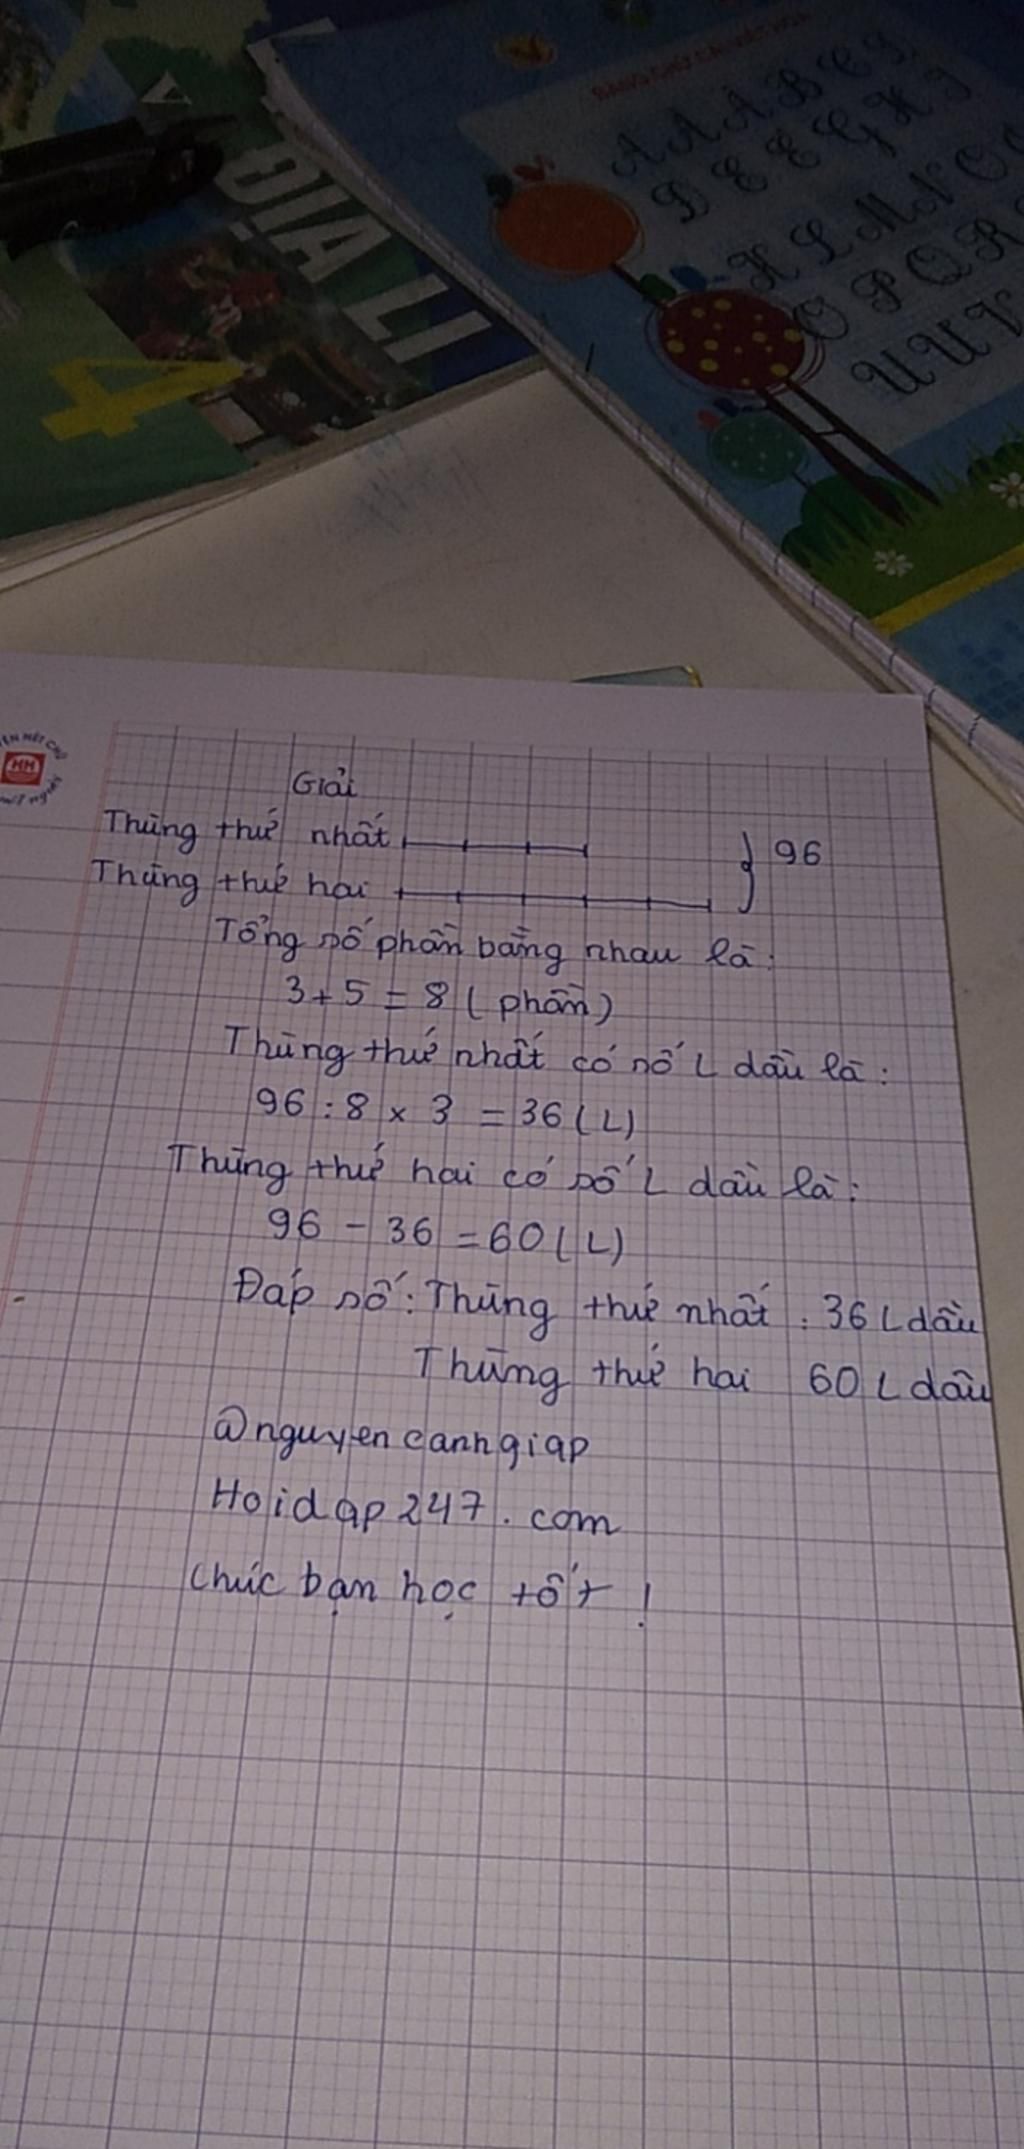 ĐỊA LÍ
4
BẢNG CHỮ CÁI VIẾT HOA
A Ă Â B C
D Đ E Ê G H I
K L M N O
Ơ P Q R
U Ư V
HH
Giải
Thùng thứ nhất
96
Thùng thứ hai
Tổng số phần bằng nhau là:
3 + 5 = 8 ( phần )
Thùng thứ nhất có số L dầu là :
96 : 8 x 3 = 36 ( L )
Thùng thứ hai có số L dầu là :
96 - 36 = 60 ( L )
Đáp số : Thùng thứ nhất : 36 L dầu
Thùng thứ hai 60 L dầu
@nguyencanhgiap
Hoidap247.com
Chúc bạn học tốt !